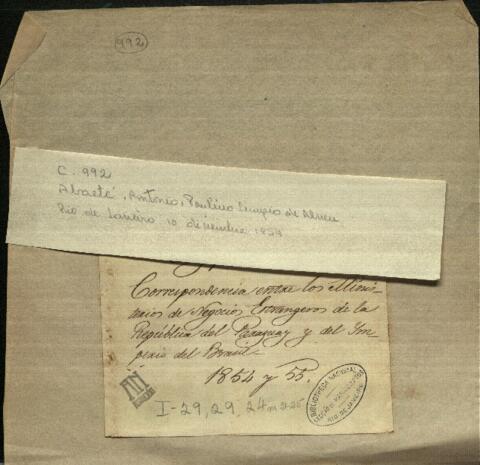 992
C. 992
Abaeté, Antonio, Paulino Limpo de Abreu
Rio de Janeiro 10 dezembro 1854
Correspondencia entre los Minis-
terios de Negocios Estrangeros de la
República del Paraguay y del Im-
perio del Brasil
1854 y 55.
I-29, 29, 24
BIBLIOTHECA NACIONAL
RIO DE JANEIRO